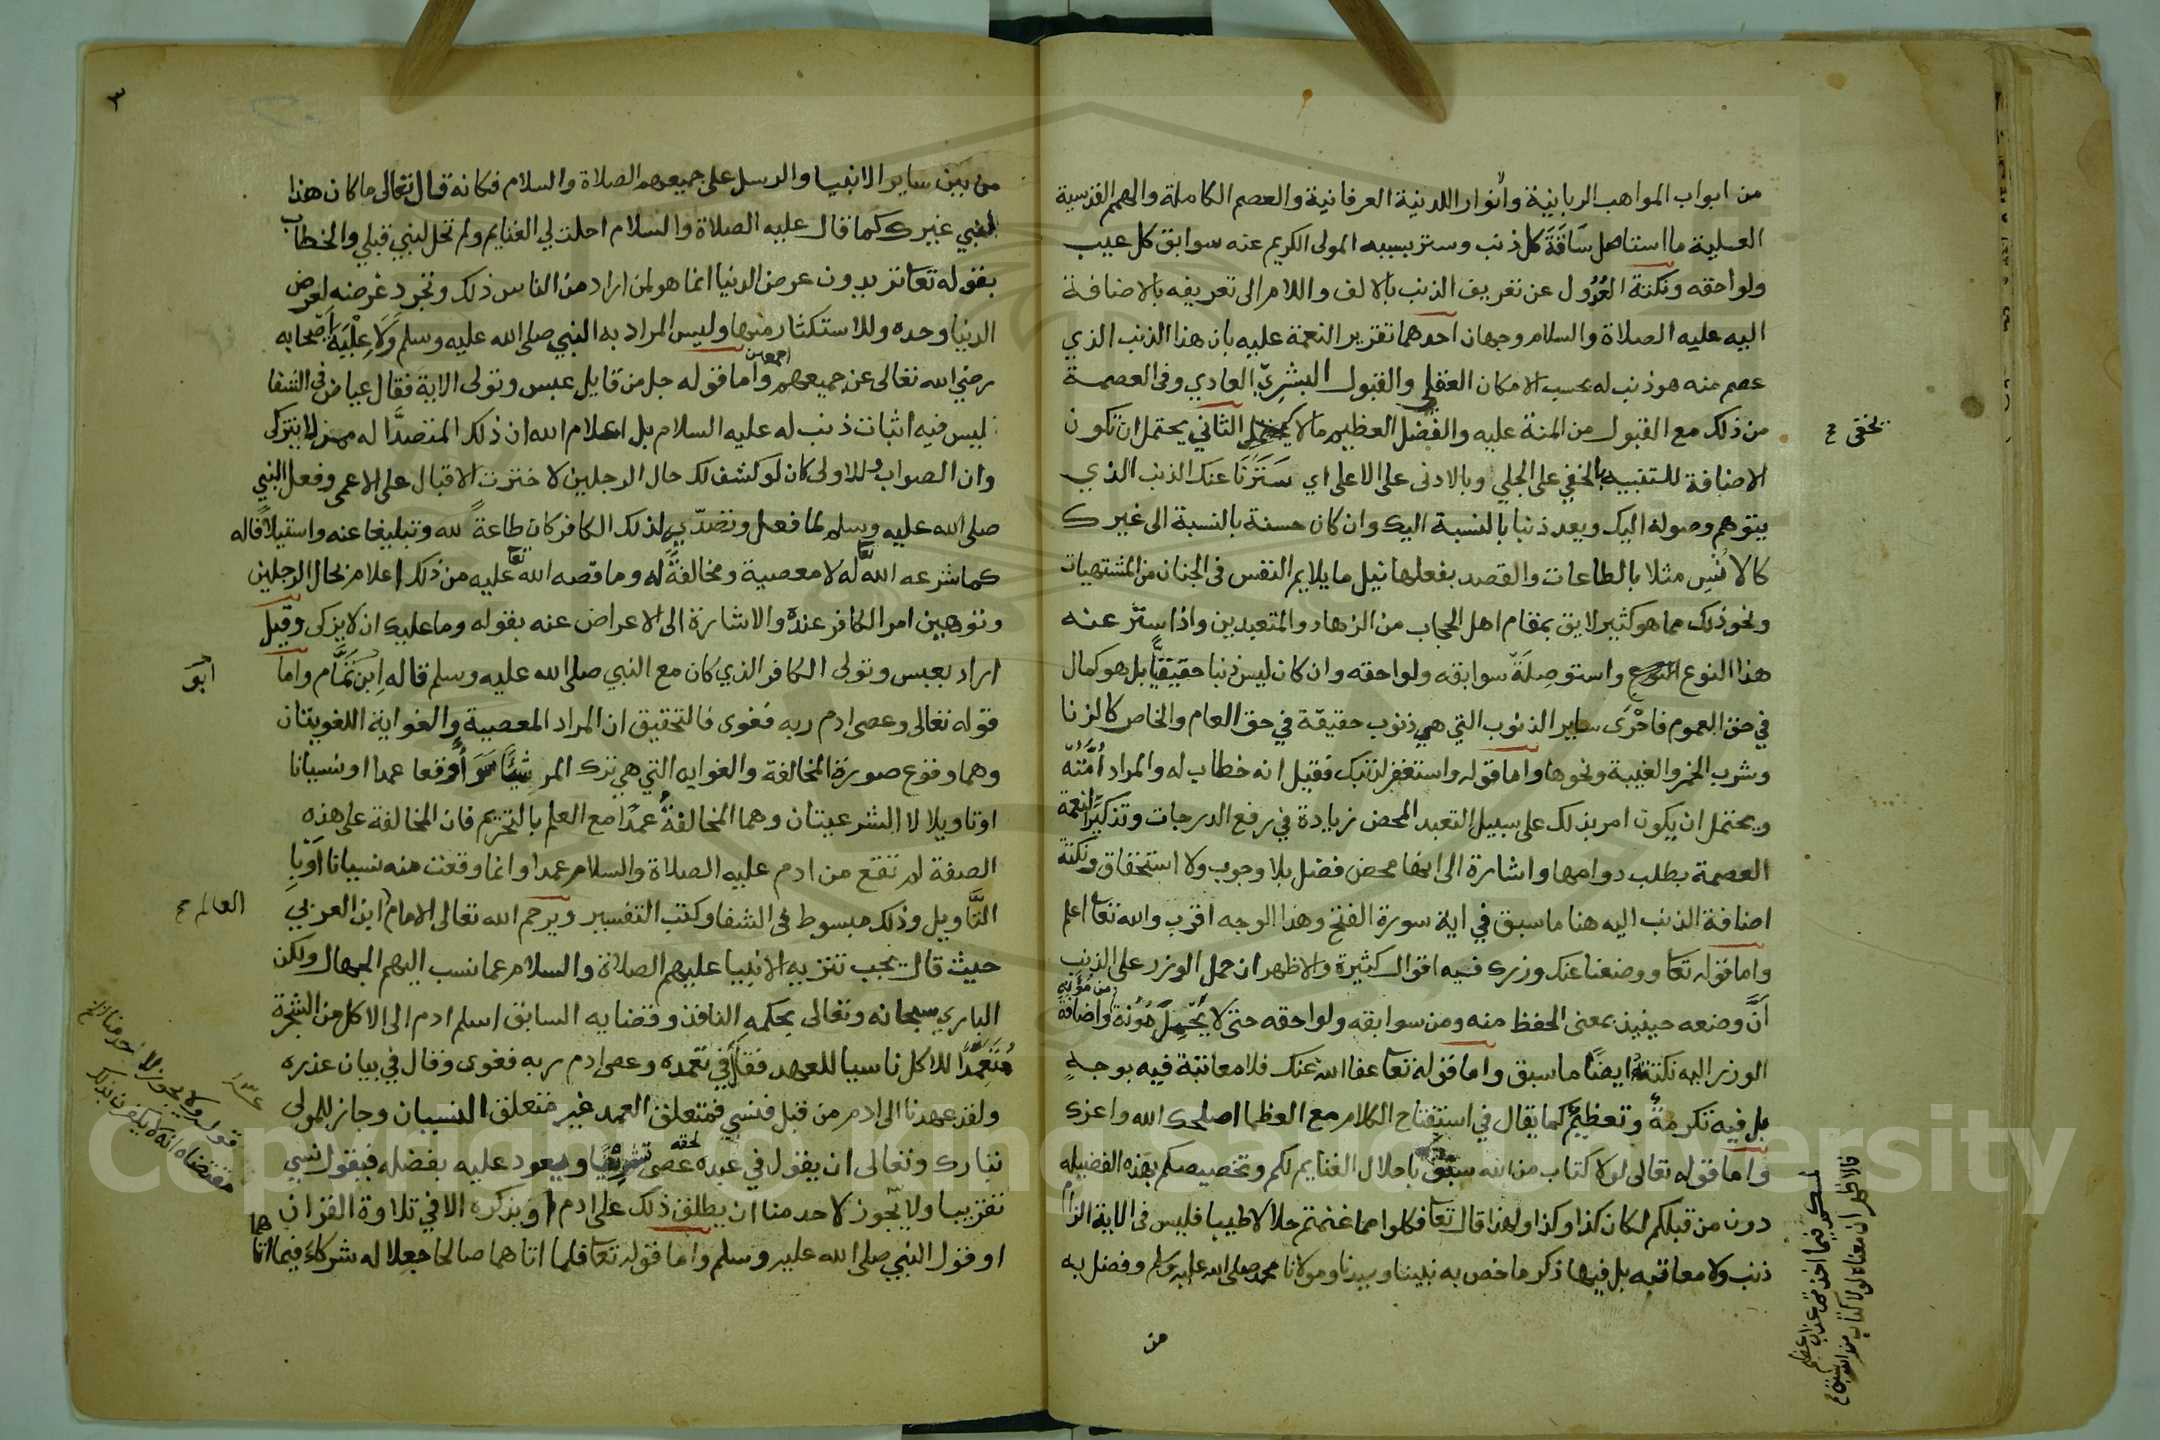 من ابواب المواهب الربانية وانوار اللدنية العرفانية والعصم الكاملة والهمم القدسية
العلية ما استاهل سَاقَةَ كل ذنب وستر بسببه المولى الكريم عنه سوابق كل عيب
ولواحقه ونكتة العُدُول عن تعريف الذنب بالالف واللام الى تعريفه بالاضافة
اليه عليه الصلاة والسلام وجهان احدهما تقرير النعمة عليه بان هذا الذنب الذي
عصم منه هو ذنب له بحسب الامكان العقلي والقبول البشري العادي وفي العصمة
من ذلك مع القبول من المنة عليه والفضل العظيم ما لا الثاني يحتمل ان تكون
يخفى صح
الاضافة للتنبيه بالخفي على الجلي وبالادنى على الاعلى اي سَتَرْنَا عنك الذنب الذي
يتوهم وصوله اليك ويعد ذنبا بالنسبة اليك وان كان حسنة بالنسبة الى غيرك
كالانس مثلا بالطاعات والقصد بفعلها نيل ما يلايم النفس في الجنان من المشتهيات
ونحو ذلك مما هو كثير لايق بمقام اهل الحجاب من الزهاد والمتعبدين واذا ستر عنه
هذا النوع واستوصلة سوابقه ولواحقه وان كان ليس ذنبا حقيقيًّا بل هو كمال
في حق العموم فاحْرَى ساير الذنوب التي هي ذنوب حقيقة في حق العام والخاص كالزنا
وشرب الخمر والغيبة ونحوها واما قوله واستغفر لذنبك فقيل انه خطاب له والمراد اُمَّتُه
ويحتمل ان يكون امر بذلك على سبيل التعبد المحض زيادة في رفع الدرجات وتذكيرًا لنعمة
العصمة بطلب دوامها واشارة الى انها محض فضل بلا وجوب ولا استحقاق ونكتة
اضافة الذنب اليه هنا ما سبق في اية سورة الفتح وهذا الوجه اقرب والله تعا اعلم
واما قوله تعا ووضعنا عنك وزرك ففيه اقوال كثيرة والاظهر ان حمل الوزر على الذنب
اَنَّ وضعه حينيذ بمعنى الحفظ منه ومن سوابقه ولواحقه حتى لا واضافة
الوزر اليه نكتته ايضًا ما سبق واما قوله تعا عفا الله عنك فلا معاتبة فيه بوجه
بل فيه تكرمة وتعظيم كما يقال في استفتاح الكلام مع العظما اصلحك الله واعزك
واما قوله تعالى لولا كتاب من الله سبق باحلال الغنايم لكم وتخصيصكم بهذه الفضيله
دون من قبلكم لكان كذا وكذا ولهذا قال تعا فكلوا مما غنمتم حلالا طيبا فليس في الاية الزام
ذنب ولا معاتبه بل فيها ذكر ما خص به نبينا وسيدنا ومولانا محمد صلى الله عليه وسلم وفضل به
من
فالاظهر ان معناه لولا كتاب من الله سبق
لمسكم فيما اخذتم عذاب عظيم
٣
من بين ساير الانبيا والرسل على جميعهم الصلاة والسلام فكانه قال تعالى ما كان هذا
لنبي غيرك كما قال عليه الصلاة والسلام احلت لي الغنايم ولم تحل لنبي قبلي والخطاب
بقوله تعا تريدون عرض الدنيا انما هو لمن اراد من الناس ذلك وتجرد غرضه لعرض
الدنيا وحده وللاستكثار منها وليس المراد به النبي صلى الله عليه وسلم وَلَا عِلْيَة اصحابه
رضي الله تعالى عن جميعهم اجمعين واما قوله جل من قايل عبس وتولى الاية فقال عياض في الشفا
ليس فيه اثبات ذنب له عليه السلام بل اعلام الله ان ذلك المتصدَّا له ممن لا يتزكى
وان الصواب وللاولى كان لو كشف لك حال الرجلين لاخترت الاقبال على الاعمى وفعل النبي
صلى الله عليه وسلم لما فعل وتصدّيه لذلك الكافر كان طاعةً لله وتبليغا عنه واستيلافا له
كما شرعه الله تعا له لا معصية ومخالفةً له وما قصه الله تعا عليه من ذلك اعلام بحال الرجلين
وتوهين امر الكافر عنده والاشارة الى الاعراض عنه بقوله وما عليك ان لا يزكى وقيل
اراد بعبس وتولى الكافر الذي كان مع النبي صلى الله عليه وسلم قاله ابن تَمَّام واما
ابو
قوله تعالى وعصى ادم ربه فغوى فالتحقيق ان المراد المعصية والغواية اللغويتان
وهما وقوع صورة المخالفة والغوايه التي هي ترك المر شيئًا وقعا عمدا او نسيانا
او تاويلا لا الشرعيتان وهما المخالفةُ عمدًا مع العلم بالتحريم فان المخالفة على هذه
الصفة لم تقع من ادم عليه الصلاة والسلام عمدا وانما وقعت منه نسيانا اوبا
التَّاويل وذلك مبسوط في الشفا وكتب التفسير ويرحم الله تعالى الامام ابن العربي
العالم صح
حيث قال يجب تنزيه الانبيا عليهم الصلاة والسلام عما نسب اليهم الجهال ولكن
الباري سبحانه وتعالى بحكمه النافذ وقضايه السابق اسلم ادم الى الاكل من الشجرة
مُتَعَمِّدًا للاكل ناسيا للعهد فقال في تعمده وعصى ادم ربه فغوى وقال في بيان عذره
ولقد عهدنا الى ادم من قبل فنسي فمتعلق العمد غير متعلق النسيان وجاز للمولى
تبارك وتعالى ان يقول في عبده لحقه عصى ويعود عليه بفضله فيقول نسي
تقريبا ولا يجوز لاحد منا ان يطلق ذلك على ادم او يذكره الا في تلاوة القران
او قول النبي صلى الله عليه وسلم واما قوله تعا فلما اتاهما صالحا جعلا له شركاء فيما اتا
هما
قوله ولا يجوز لاحد منا
مقتضاه انه لا يكفر بذلك
Copyright © King Saud University